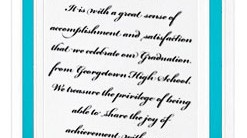 It is with a great sense of
accomplishment and satisfaction
that we celebrate our Graduation
from Georgetown High School.
We treasure the privilege of being
able to share the joy of
achievement with